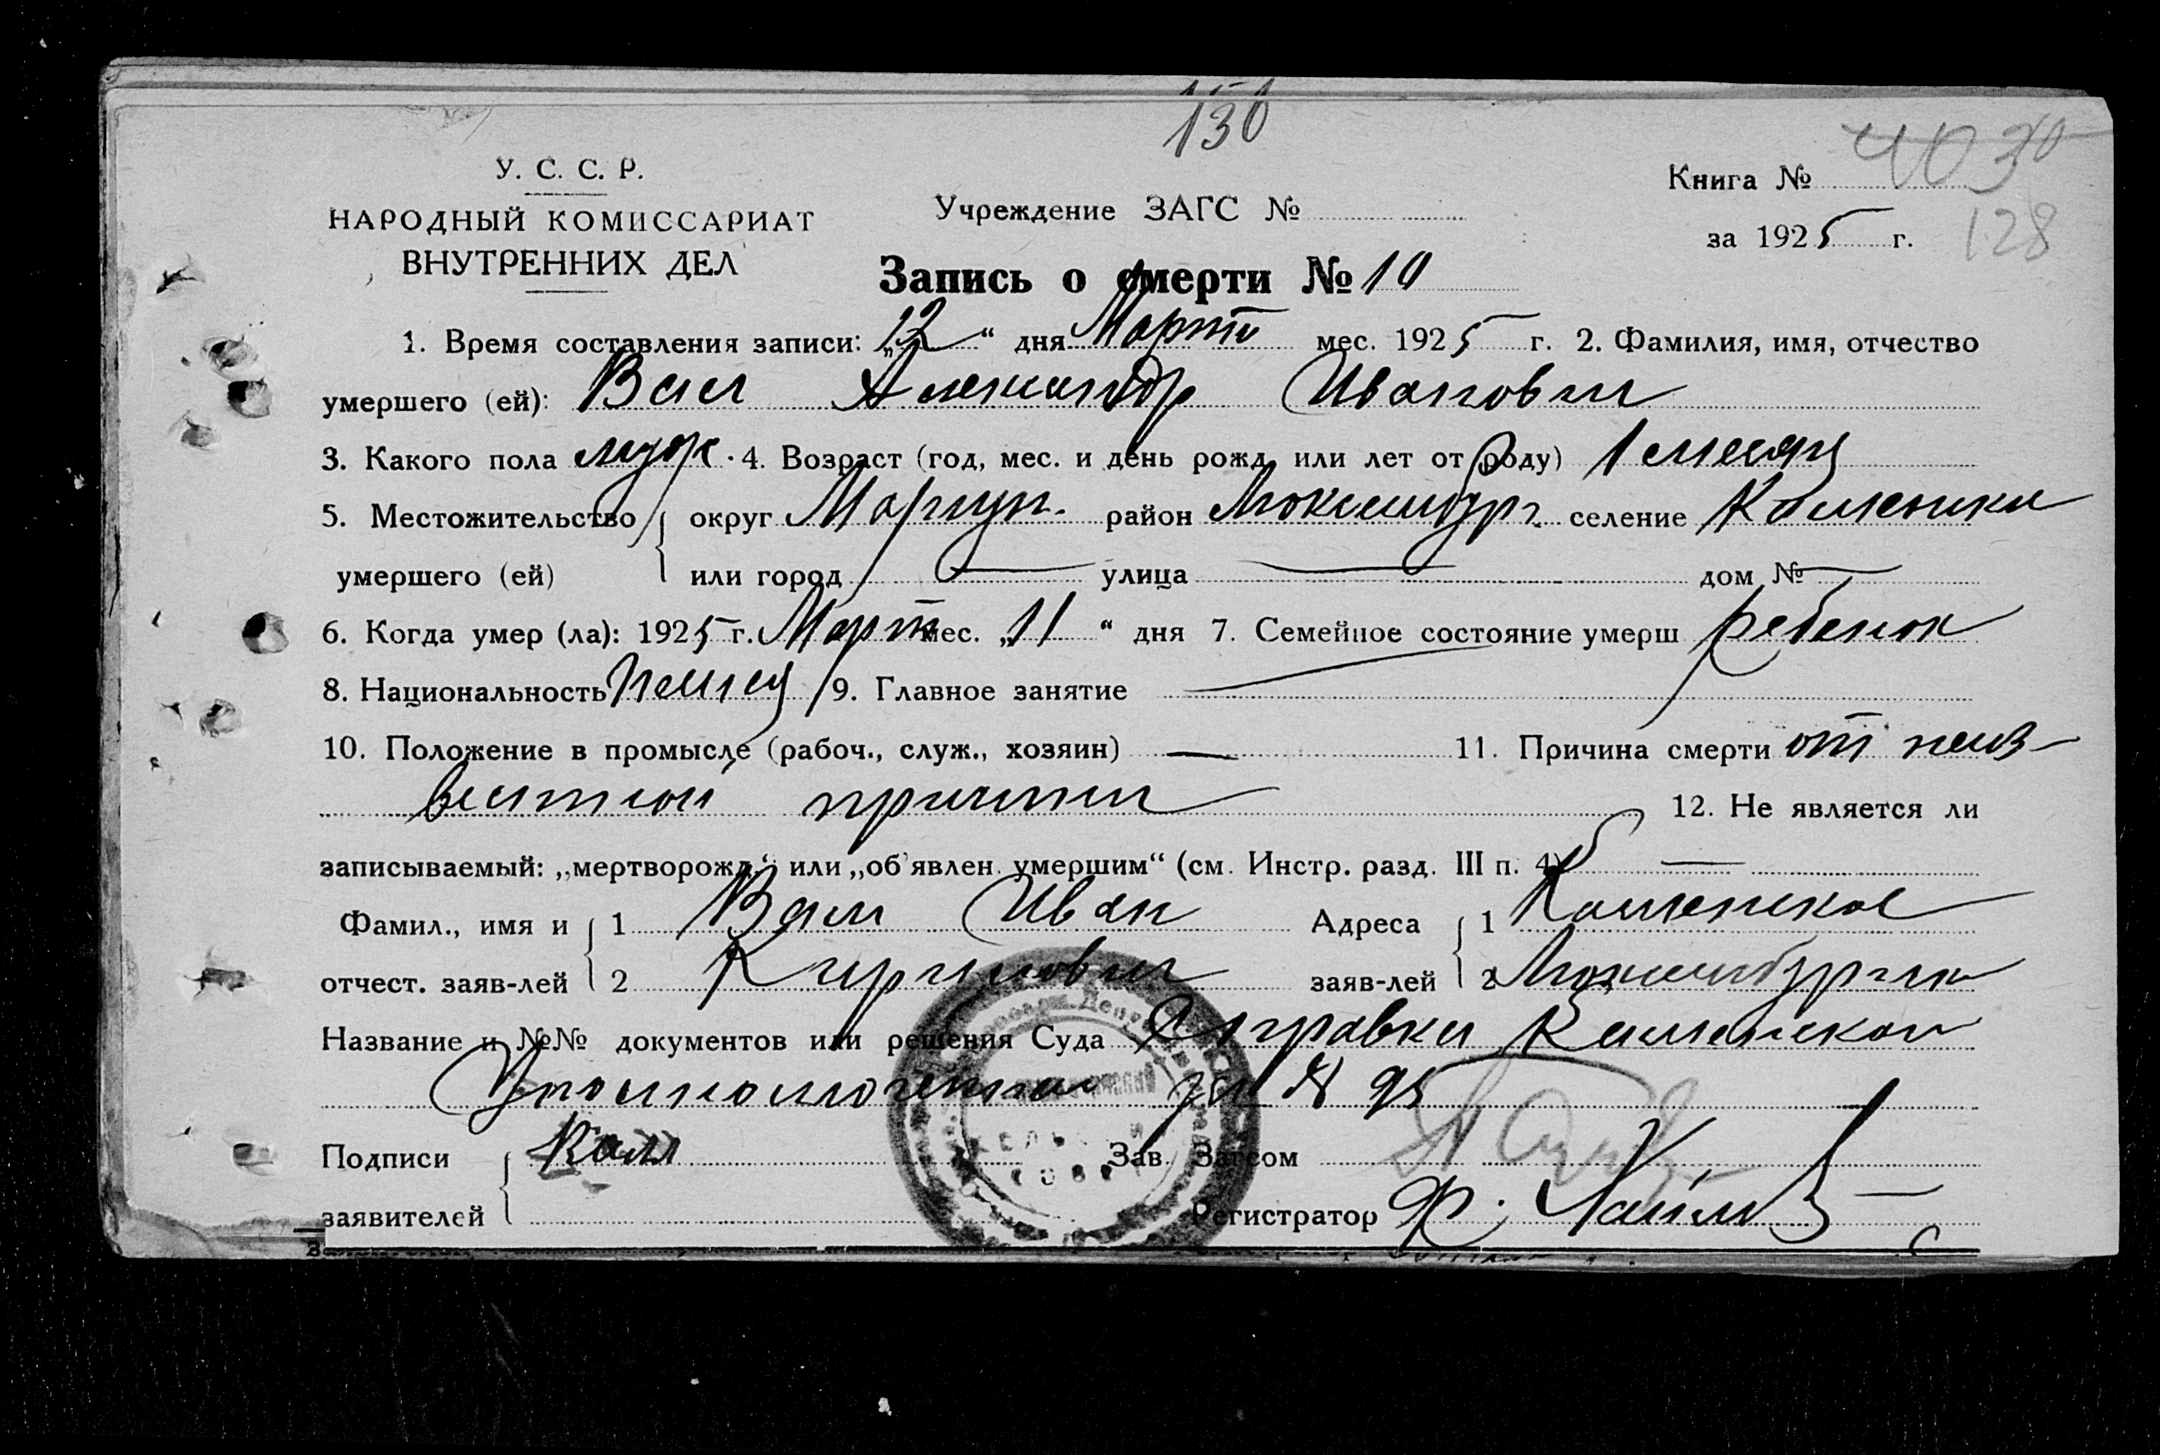 130
У. С. С. Р.
НАРОДНЫЙ КОМИССАРИАТ
ВНУТРЕННИХ ДЕЛ
Учреждение ЗАГС №
Книга № 403
за 1925 г. 128
Запись о смерти № 10
1. Время составления записи: „12“ дня Март мес. 1925 г. 2. Фамилия, имя, отчество
умершего (ей): Валл Александр Иванович
3. Какого пола муж. 4. Возраст (год, мес. и день рожд. или лет от роду) 1 месяц
5. Местожительство округ Мариуп. район Люксембург. селение Каменски
умершего (ей) или город — улица — дом № —
6. Когда умер (ла): 1925 г. Март мес. „11“ дня 7. Семейное состояние умерш ребенок
8. Национальность Немец 9. Главное занятие —
10. Положение в промысле (рабоч., служ., хозяин) — 11. Причина смерти от неиз-
вестной причины
12. Не является ли
записываемый: „мертворожд.“ или „об'явлен. умершим“ (см. Инстр. разд. III п. 4) —
Фамил., имя и 1 Валл Иван Адреса 1 Каменское
отчест. заяв-лей 2 Кирилович заяв-лей 2
Название и №№ документов или решения Суда Справки Каменской
за № 95
Подписи Валл Зав. Загсом
заявителей Регистратор Ф.